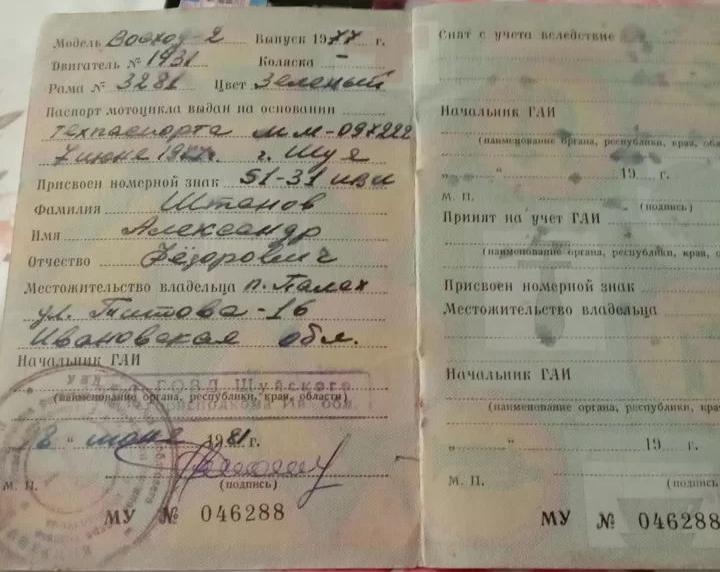 Модель Восход-2 Выпуск 1977 г.
Двигатель № 1931 Коляска –
Рама № 3281 Цвет Зеленый
Паспорт мотоцикла выдан на основании
техпаспорта ММ-097222
7 июня 1977г. г. Шуя
Присвоен номерной знак 51-31 ИВИ
Фамилия Штанов
Имя Александр
Отчество Фёдорович
Местожительство владельца п. Палех
ул. Титова -16
Ивановская обл.
Начальник ГАИ
ГОВД Шуйского
(наименование органа, республики, края, области)
8 " июня 1981 г.
М. П. (подпись)
МУ № 046288
Снят с учета вследствие
Начальник ГАИ
(наименование органа, республики, края, обл
„ " 19 г.
М. П. (подпись)
Принят на учет ГАИ
(наименование органа, республики, края, о
Присвоен номерной знак
Местожительство владельца
Начальник ГАИ
(наименование органа, республики, кра
„ " 19 г.
М. П. (подпис
МУ № 046288